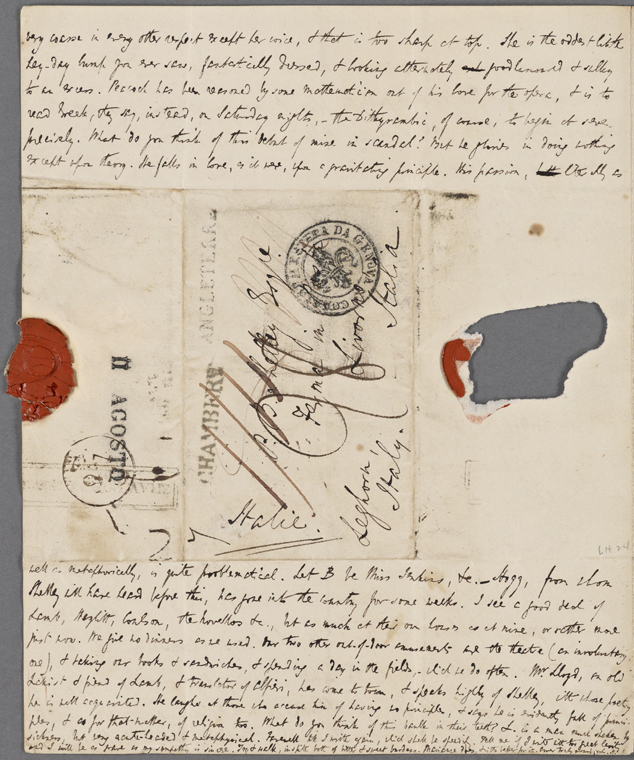 very coarse in every other respect except her voice, & that is too sharp at top. She is the oddest little
hey-day you ever saw, fantastically dressed, & looking alternately good humoured & sulky
to an excess. Peacock has been reasoned by some mathematician out of his love for the opera, & is to
read Greek, they say, instead, on Saturday nights, – the Dithyrambic, of course, to begin at seven
precisely. What do you think of this debut of mine in scandal? But he glories in doing nothing
except upon theory. He falls in love, as it were, upon a gravitating principle. His passion, as
CORRISPZA ESTERA DA GENOVA
ANGLETERRE
CHAMBERY
11 AGOSTO
P. B. Shelley Esqre
Ferma in
Livorno
Italia
Leghorn,
Italy.
Italie.
LH 24
well as metaphorically, is quite problematical. Let B be Miss Jenkins, &c. – Hogg, from whom
Shelley will have heard before this, has gone into the country for some weeks. I see a good deal of
Lamb, Hazlitt, Coulson, the Novellos &c., but as much at their own houses as at mine, or rather more
just now. We give no dinners as we used. Our two other out-of-door amusements are the theatre (an involuntary
one), & taking our books & sandwiches, & spending a day in the fields, – which we do often. Mr. Lloyd, an old
& friend of Lamb, & translator of Alfieri, has come to town, & speaks highly of Shelley, with whose poetry
he is well acquainted. He laughed at those who accuse him of having no principle, & says he is evidently full of princi-
ples, & as for that matter, of religion too. What do you think of this in their teeth? L. is a man much shaken by
sickness, but very acute-headed & metaphysical. Farewell till I write again, which shall be speedily.
and I will be as grave as my sympathy is sincere.